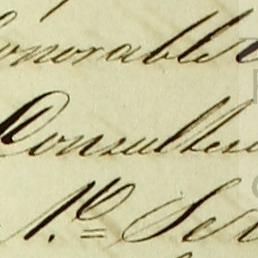 onorable
Consulten
N.º Ser